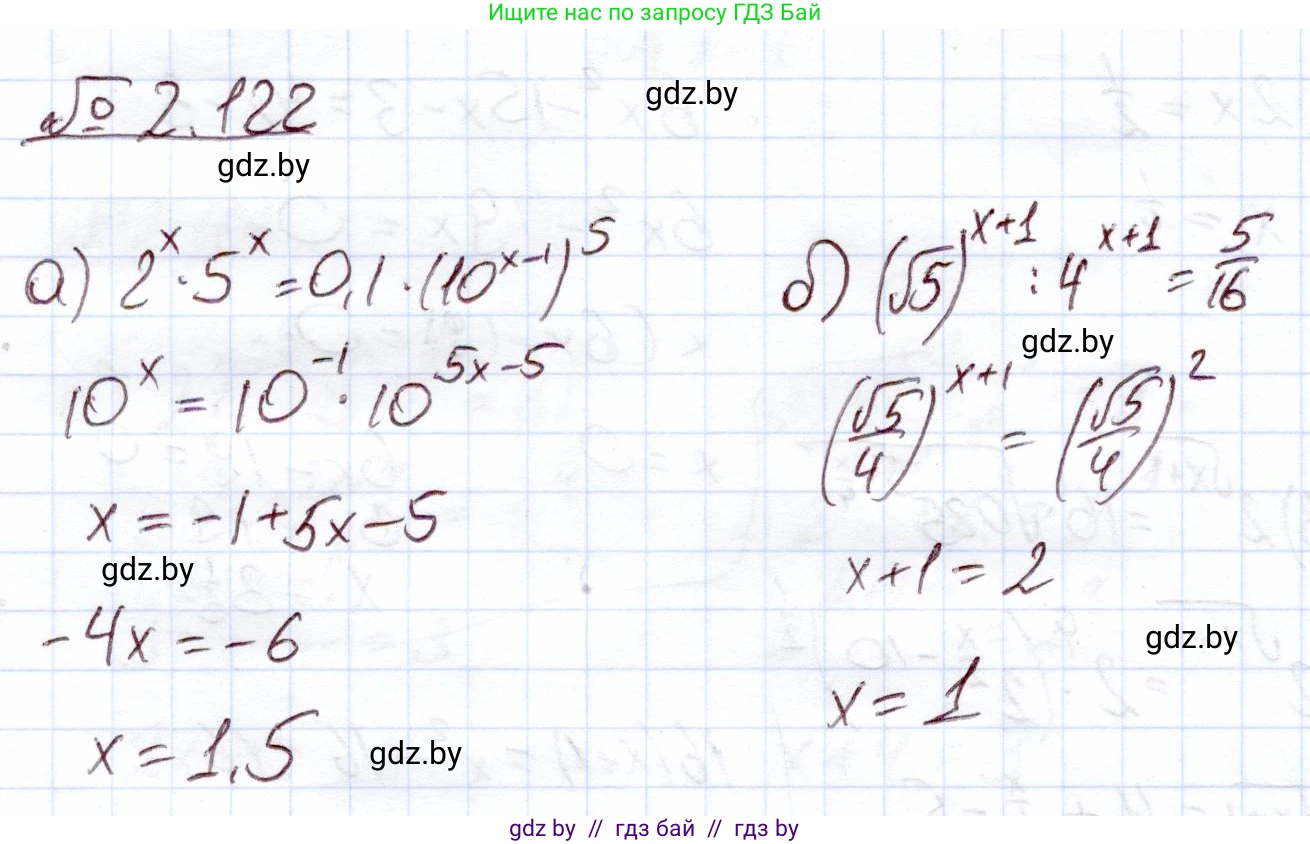 Ищите нас по запросу ГДЗ Бай
№ 2.122
gdz.by
gdz.by
а) 2^x · 5^x = 0,1 · (10^(x-1))^5
10^x = 10^(-1) · 10^(5x-5)
x = -1+5x-5
gdz.by
-4x = -6
x = 1,5
gdz.by
б) (√5)^(x+1) : 4^(x+1) = 5/16
gdz.by
(√5/4)^(x+1) = (√5/4)^2
x+1 = 2
gdz.by
x = 1
gdz by // гдз бай // гдз by